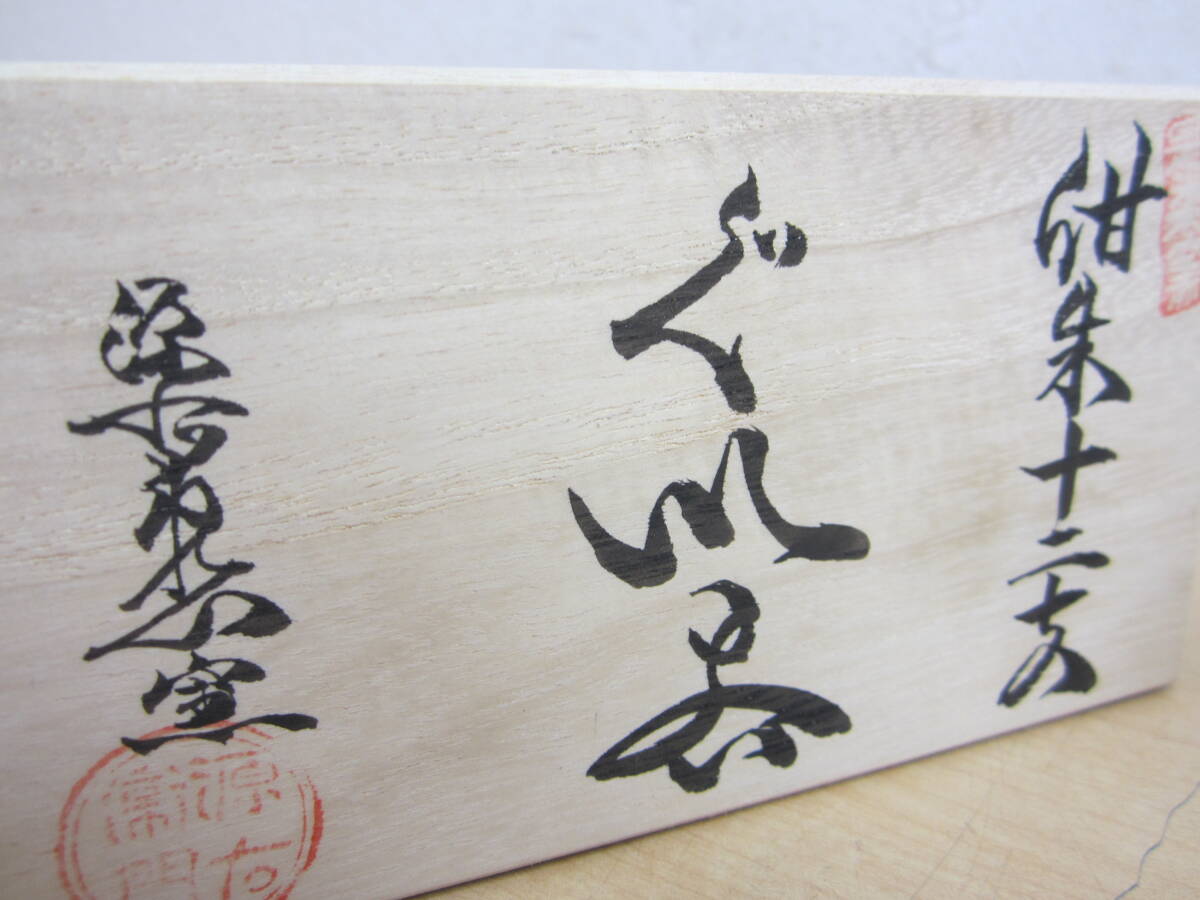 紺朱十二支
ぐい呑
源右衛門窯
源右
衛門